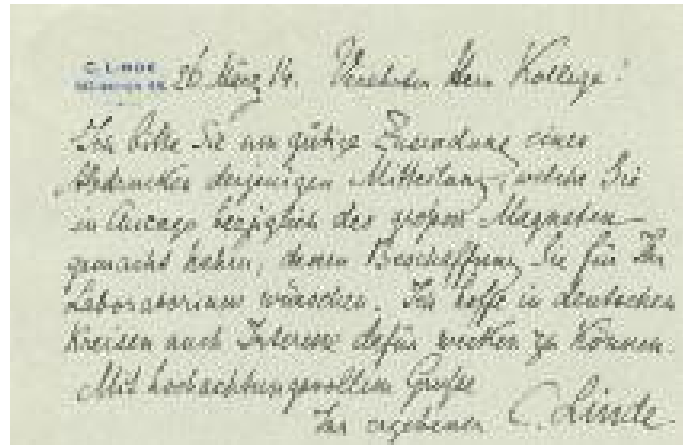 C. LINDE
26 März 14. Verehrter Herr Kollege!
Ich bitte Sie um gütige Zusendung eines
Abdruckes derjenigen Mitteilung, welche Sie
in Chicago bezüglich des großen Magneten
gemacht haben, dessen Beschaffung Sie für Ihr
Laboratorium wünschen. Ich hoffe in deutschen
Kreisen auch Interesse dafür wecken zu können.
Mit hochachtungsvollem Gruße
Ihr ergebener C. Linde